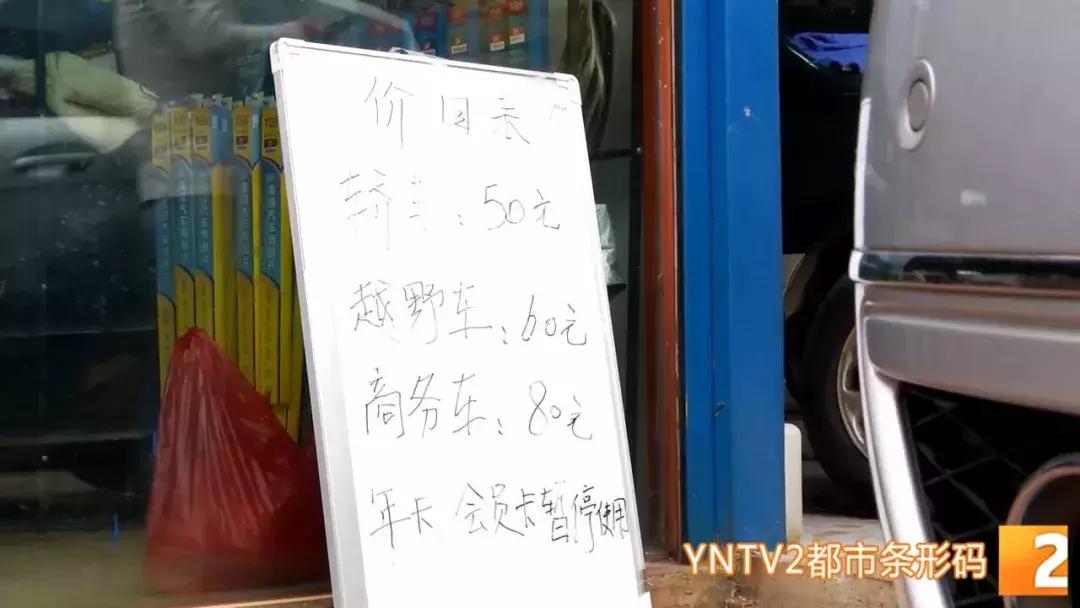 价目表
轿车：50元
越野车：60元
商务车：80元
年卡 会员卡暂停使用
YNTV2都市条形码
2